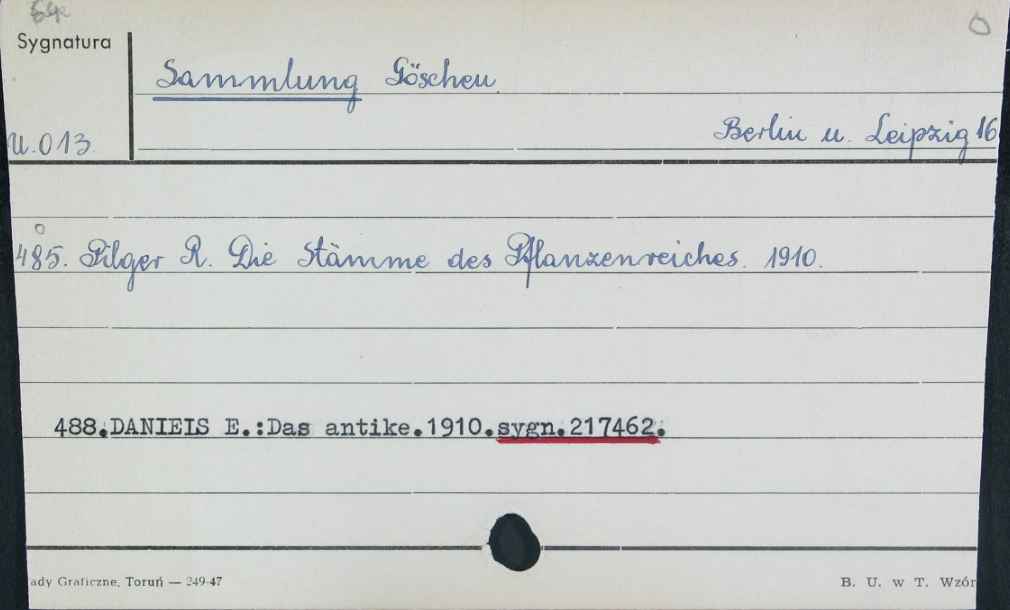 54
Sygnatura
Sammlung Göschen
U.013
Berlin u. Leipzig 16
485. Pilger R. Die Stämme des Pflanzenreiches. 1910.
488.DANIEIS E.:Das antike.1910.sygn.217462.
ady Graficzne, Toruń — 249-47
B. U. w T. Wzór